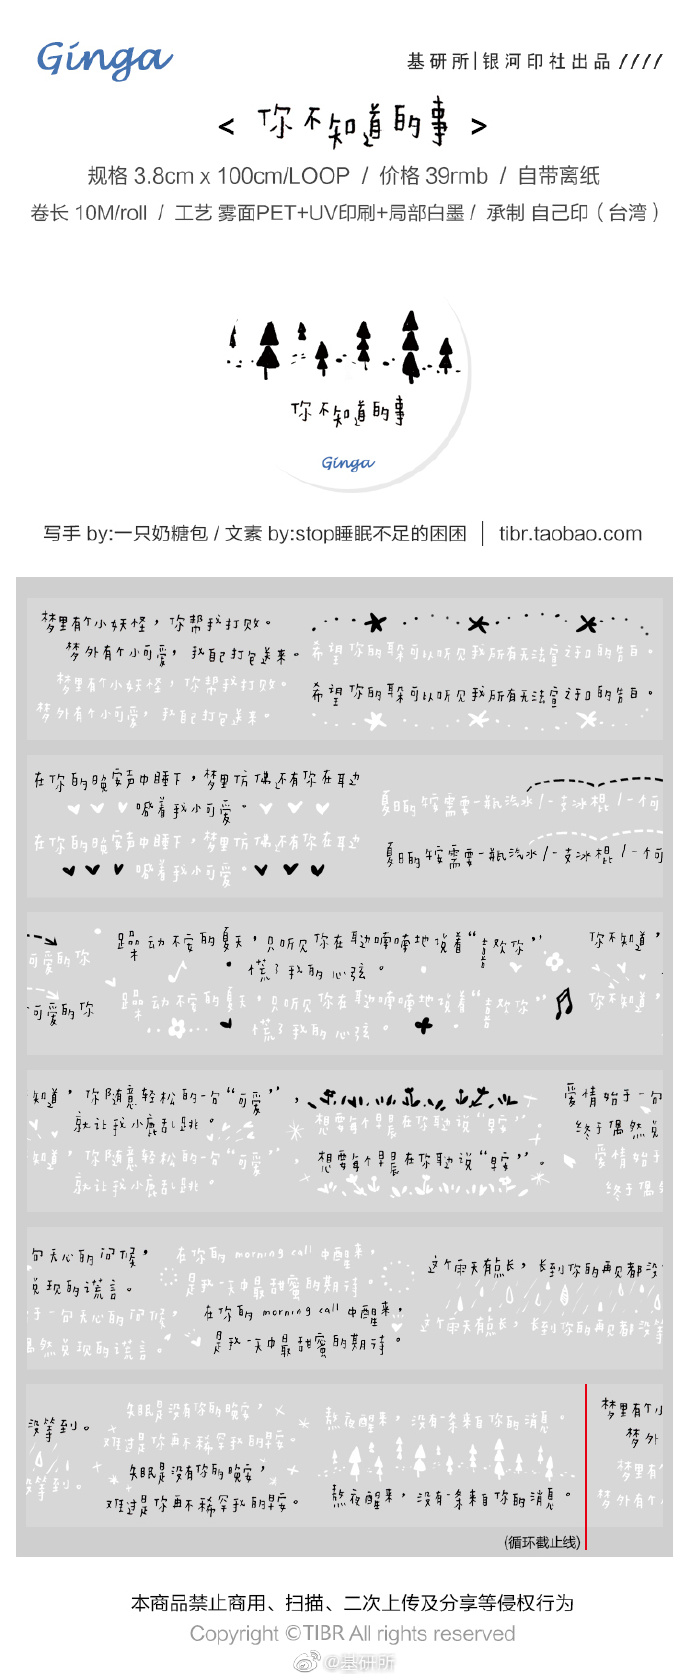 Ginga
基研所|银河印社出品 ////
< 你不知道的事 >
规格 3.8cm x 100cm/LOOP / 价格 39rmb / 自带离纸
卷长 10M/roll / 工艺 雾面PET+UV印刷+局部白墨 / 承制 自己印（台湾）
你不知道的事
Ginga
写手 by:一只奶糖包 / 文素 by:stop睡眠不足的困困 | tibr.taobao.com
梦里有个小妖怪，你帮我打败。
梦外有个小可爱，我自己打包送来。
梦里有个小妖怪，你帮我打败。
梦外有个小可爱，我自己打包送来。
希望你的耳朵可以听见我所有无法宣之于口的告白。
希望你的耳朵可以听见我所有无法宣之于口的告白。
在你的晚安声中睡下，梦里仿佛还有你在耳边
喊着我小可爱。
在你的晚安声中睡下，梦里仿佛还有你在耳边
喊着我小可爱。
夏日的午后需要一瓶汽水/一支冰棍/一个可
夏日的午后需要一瓶汽水/一支冰棍/一个可
可爱的你
可爱的你
躁动不安的夏天，只听见你在耳边喃喃地说着“喜欢你”
慌了我的心弦。
躁动不安的夏天，只听见你在耳边喃喃地说着“喜欢你”
慌了我的心弦。
你不知道，
你不知道，
知道，你随意轻松的一句“可爱”，
就让我小鹿乱跳。
知道，你随意轻松的一句“可爱”，
就让我小鹿乱跳。
想要每个早晨在你耳边说“早安”。
想要每个早晨在你耳边说“早安”。
爱情始于一句
终于偶然兑
爱情始于
终于偶然
句关心的问候，
兑现的谎言。
于一句关心的问候，
偶然兑现的谎言。
在你的 morning call 中醒来，
是我一天中最甜蜜的期待。
在你的 morning call 中醒来，
是我一天中最甜蜜的期待。
这个雨天有点长，长到你的再见都没
这个雨天有点长，长到你的再见都没等
没等到。
没等到。
失眠是没有你的晚安，
难过是你再不稀罕我的早安。
失眠是没有你的晚安，
难过是你再不稀罕我的早安。
熬夜醒来，没有一条来自你的消息。
熬夜醒来，没有一条来自你的消息。
梦里有个小
梦外
梦里有
梦外有个
(循环截止线)
本商品禁止商用、扫描、二次上传及分享等侵权行为
Copyright ©TIBR All rights reserved
@基研所